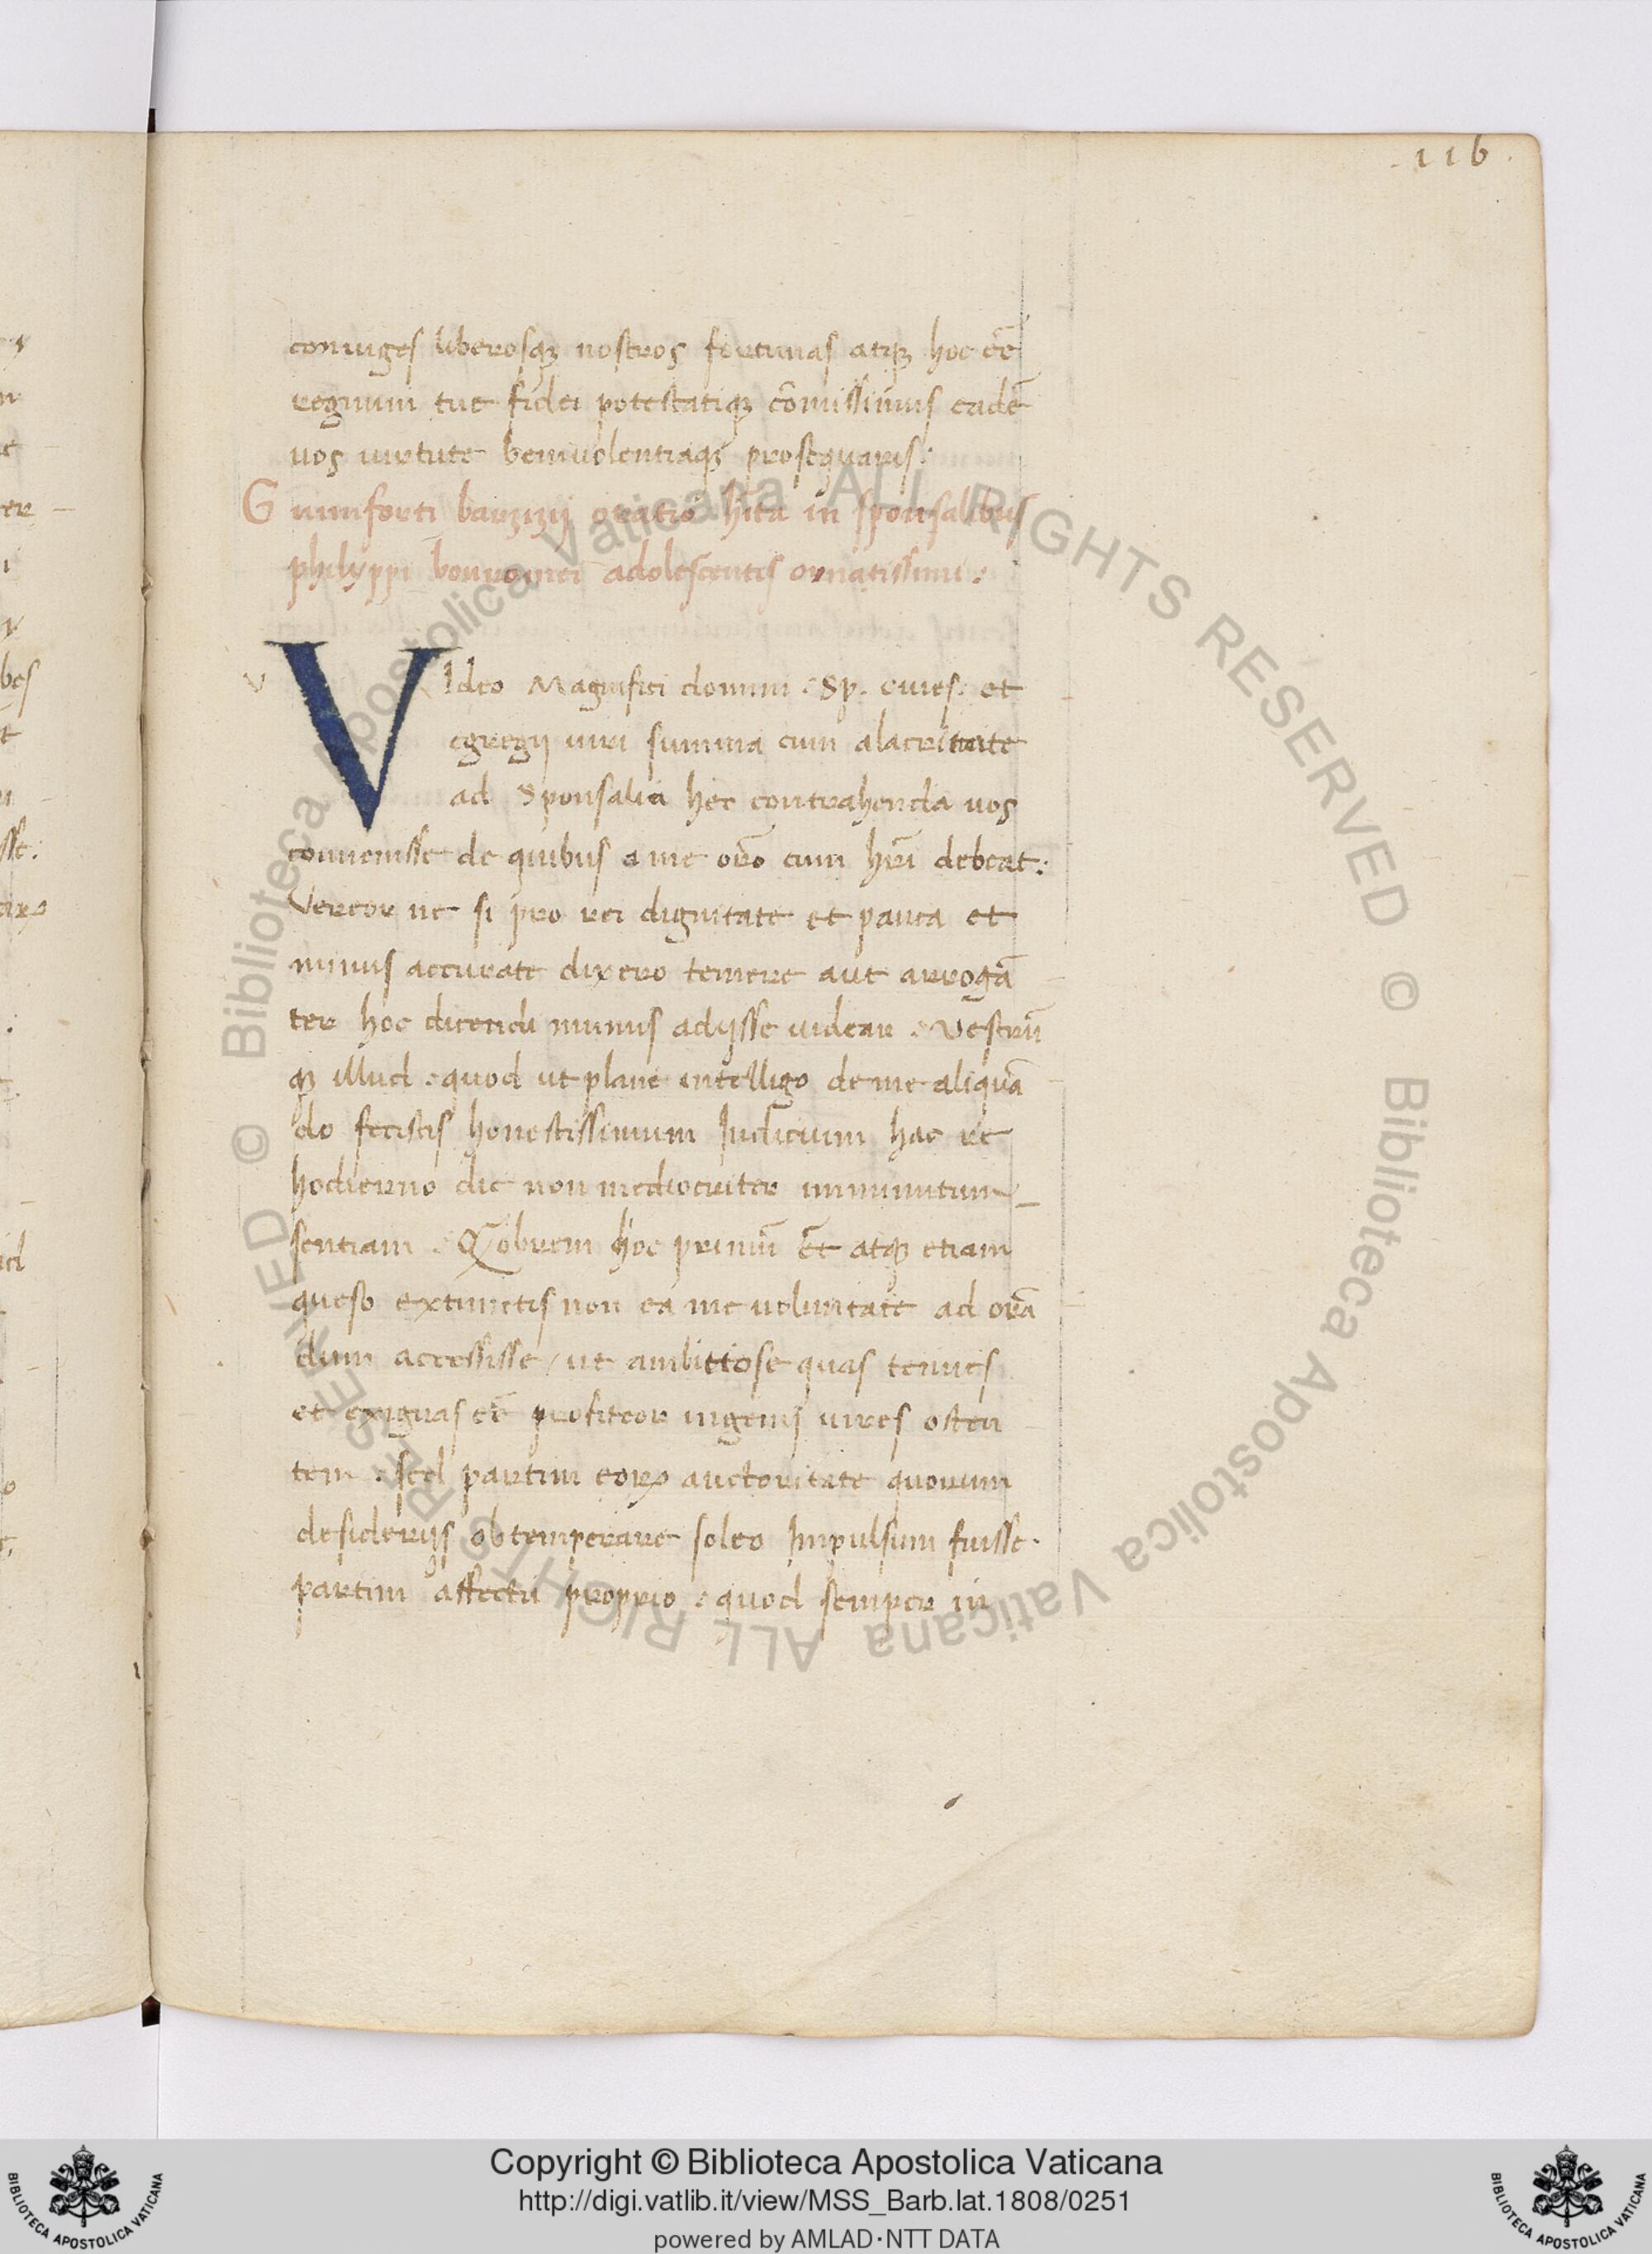 .116.
coniuges liberosqꝫ nostros fortunas atqꝫ hoc ēē
regnum tue fidei potestatiqꝫ cōmissimus eadē
uos uirtute beniuolentiaqꝫ prosequaris:
Guiniforti barzizij oratio hīta in sponsalibus
philyppi bonromei adolescentis ornatissimi:
v
VIdeo Magnifici domini. Sp. ciues: et
egregij uiri summa cum alacritate
ad Sponsalia hec contrahenda uos
conuenisse de quibus a me orō cum hr̄i debeat:
Vereor ne si pro rei dignitate et pauca et
minus accurate dixero temere aut arrogā
ter hoc dicendi munus adijsse uidear. Vestrū
qꝫ illud. quod ut plane intelligo de me aliquā
do fecistis honestissimum Iudicium hac re
hodierno die non mediocriter imminutum
sentiam. Q̄obrem hoc primū ēt atqꝫ etiam
queso extimetis non ea me uoluntate ad orā
dum accessisse / ut ambitiose quas tenues
et exiguas eē profiteor ingenij uires osten
tem. sed partim eoꝝ auctoritate quorum
desiderijs obtemperare soleo Impulsum fuisse.
partim affectu proprio. quod semper in
Copyright © Biblioteca Apostolica Vaticana
http://digi.vatlib.it/view/MSS_Barb.lat.1808/0251
powered by AMLAD·NTT DATA